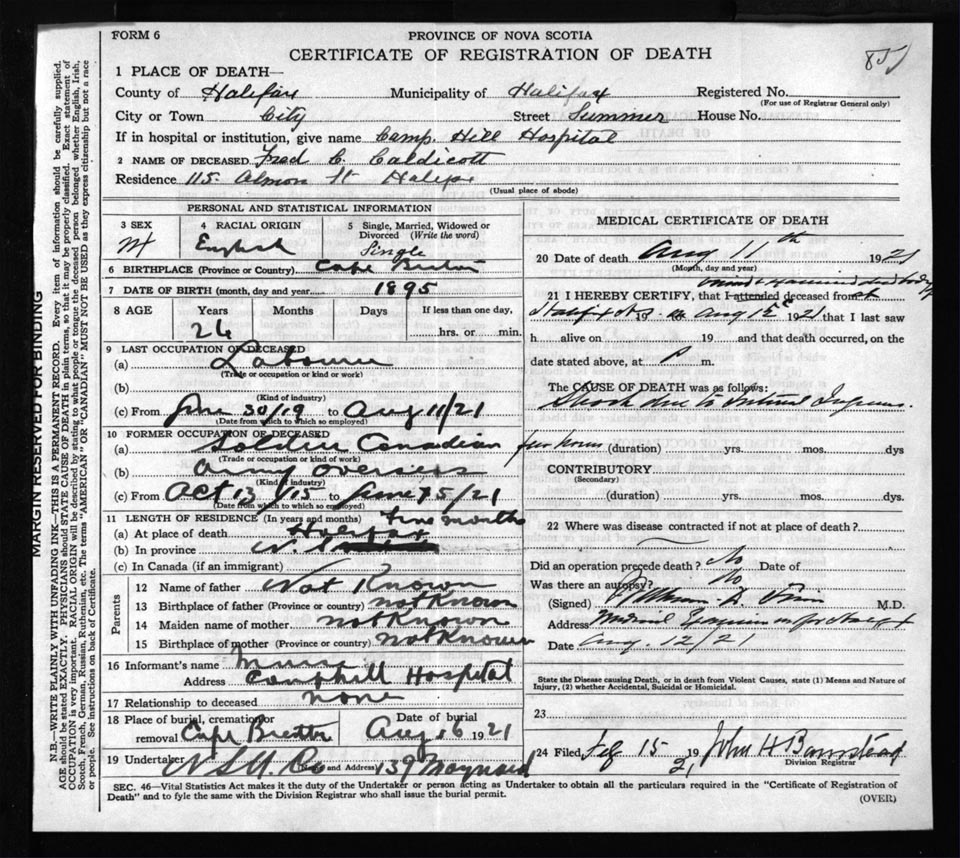 FORM 6
PROVINCE OF NOVA SCOTIA
CERTIFICATE OF REGISTRATION OF DEATH
1 PLACE OF DEATH—
County of Halifax Municipality of Halifax Registered No.
(For use of Registrar General only)
City or Town City Street Summer House No.
If in hospital or institution, give name Camp Hill Hospital
2 NAME OF DECEASED Fred C. Caldicott
Residence 115 Almon St Halifax
(Usual place of abode)
PERSONAL AND STATISTICAL INFORMATION
3 SEX 4 RACIAL ORIGIN 5 Single, Married, Widowed or
Divorced (Write the word)
M English Single
6 BIRTHPLACE (Province or Country) Cape Breton
7 DATE OF BIRTH (month, day and year) 1895
8 AGE Years Months Days If less than one day,
26 hrs. or min.
9 LAST OCCUPATION OF DECEASED
(a) Labourer
(Trade or occupation or kind or work)
(b)
(Kind of industry)
(c) From June 30/19 to Aug 11/21
(Date from which to which so employed)
10 FORMER OCCUPATION OF DECEASED
(a) Soldier Canadian
(Trade or occupation or kind of work)
(b) Army overseas
(Kind of industry)
(c) From Oct 13/15 to June 15/21
(Date from which to which so employed)
11 LENGTH OF RESIDENCE (In years and months) months
(a) At place of death
(b) In province N. S
(c) In Canada (if an immigrant)
Parents
12 Name of father Not Known
13 Birthplace of father (Province or country) not Known
14 Maiden name of mother not Known
15 Birthplace of mother (Province or country) not Known
16 Informant's name
Address Camp Hill Hospital
17 Relationship to deceased none
18 Place of burial, cremation or removal Cape Breton Date of burial Aug 16 1921
19 Undertaker N S U. Co (Name and Address) 139 Maynard
MEDICAL CERTIFICATE OF DEATH
20 Date of death Aug 11th 1921
(Month, day and year)
21 I HEREBY CERTIFY, that I attended deceased from
Halifax N.S. Aug 12 1921 that I last saw
h alive on 19 and that death occurred, on the
date stated above, at m.
The CAUSE OF DEATH was as follows:
Shock due to Internal Injuries.
few hours (duration) yrs. mos. dys
CONTRIBUTORY
(Secondary)
(duration) yrs. mos. dys.
22 Where was disease contracted if not at place of death?
Did an operation precede death? No Date of
Was there an autopsy? No
(Signed) M.D.
Address Medical Examiner for Halifax
Date Aug. 12/21
State the Disease causing Death, or in death from Violent Causes, state (1) Means and Nature of
Injury, (2) whether Accidental, Suicidal or Homicidal.
23
24 Filed, 15 1921 John H Barnstead
Division Registrar
SEC. 46—Vital Statistics Act makes it the duty of the Undertaker or person acting as Undertaker to obtain all the particulars required in the "Certificate of Registration of
Death" and to fyle the same with the Division Registrar who shall issue the burial permit.
(OVER)
MARGIN RESERVED FOR BINDING
N.B.—WRITE PLAINLY WITH UNFADING INK—THIS IS A PERMANENT RECORD. Every item of information should be carefully supplied.
AGE should be stated EXACTLY. PHYSICIANS should STATE CAUSE OF DEATH in plain terms, so that it may be properly classified. Exact statement of
OCCUPATION is very important. RACIAL ORIGIN will be described by stating to what people or tongue the deceased person belonged whether English, Irish,
Scotch, French, German, Russian, Ruthenian, etc. The terms "AMERICAN" OR "CANADIAN" MUST NOT BE USED as they express citizenship but not a race
or people. See instructions on back of Certificate.